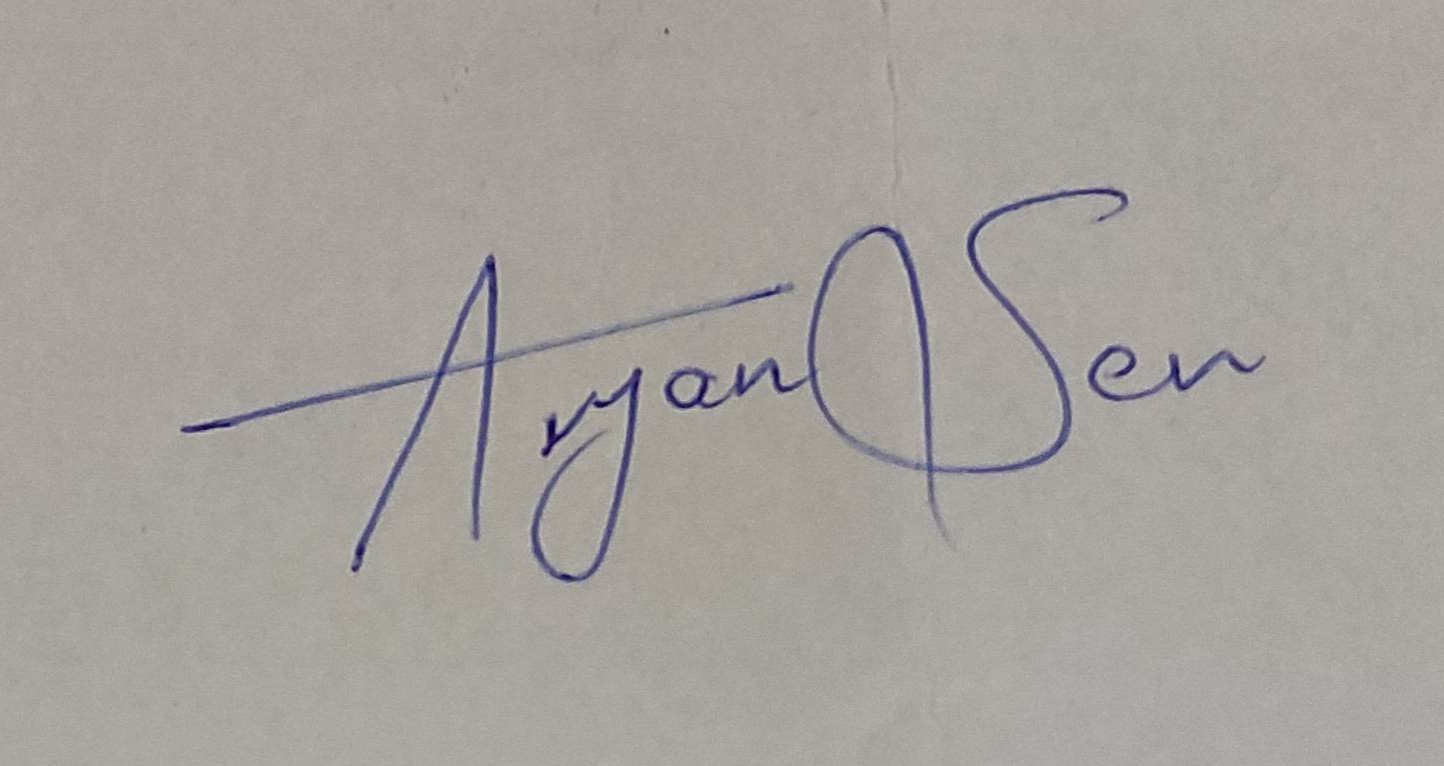 Aryan Sen